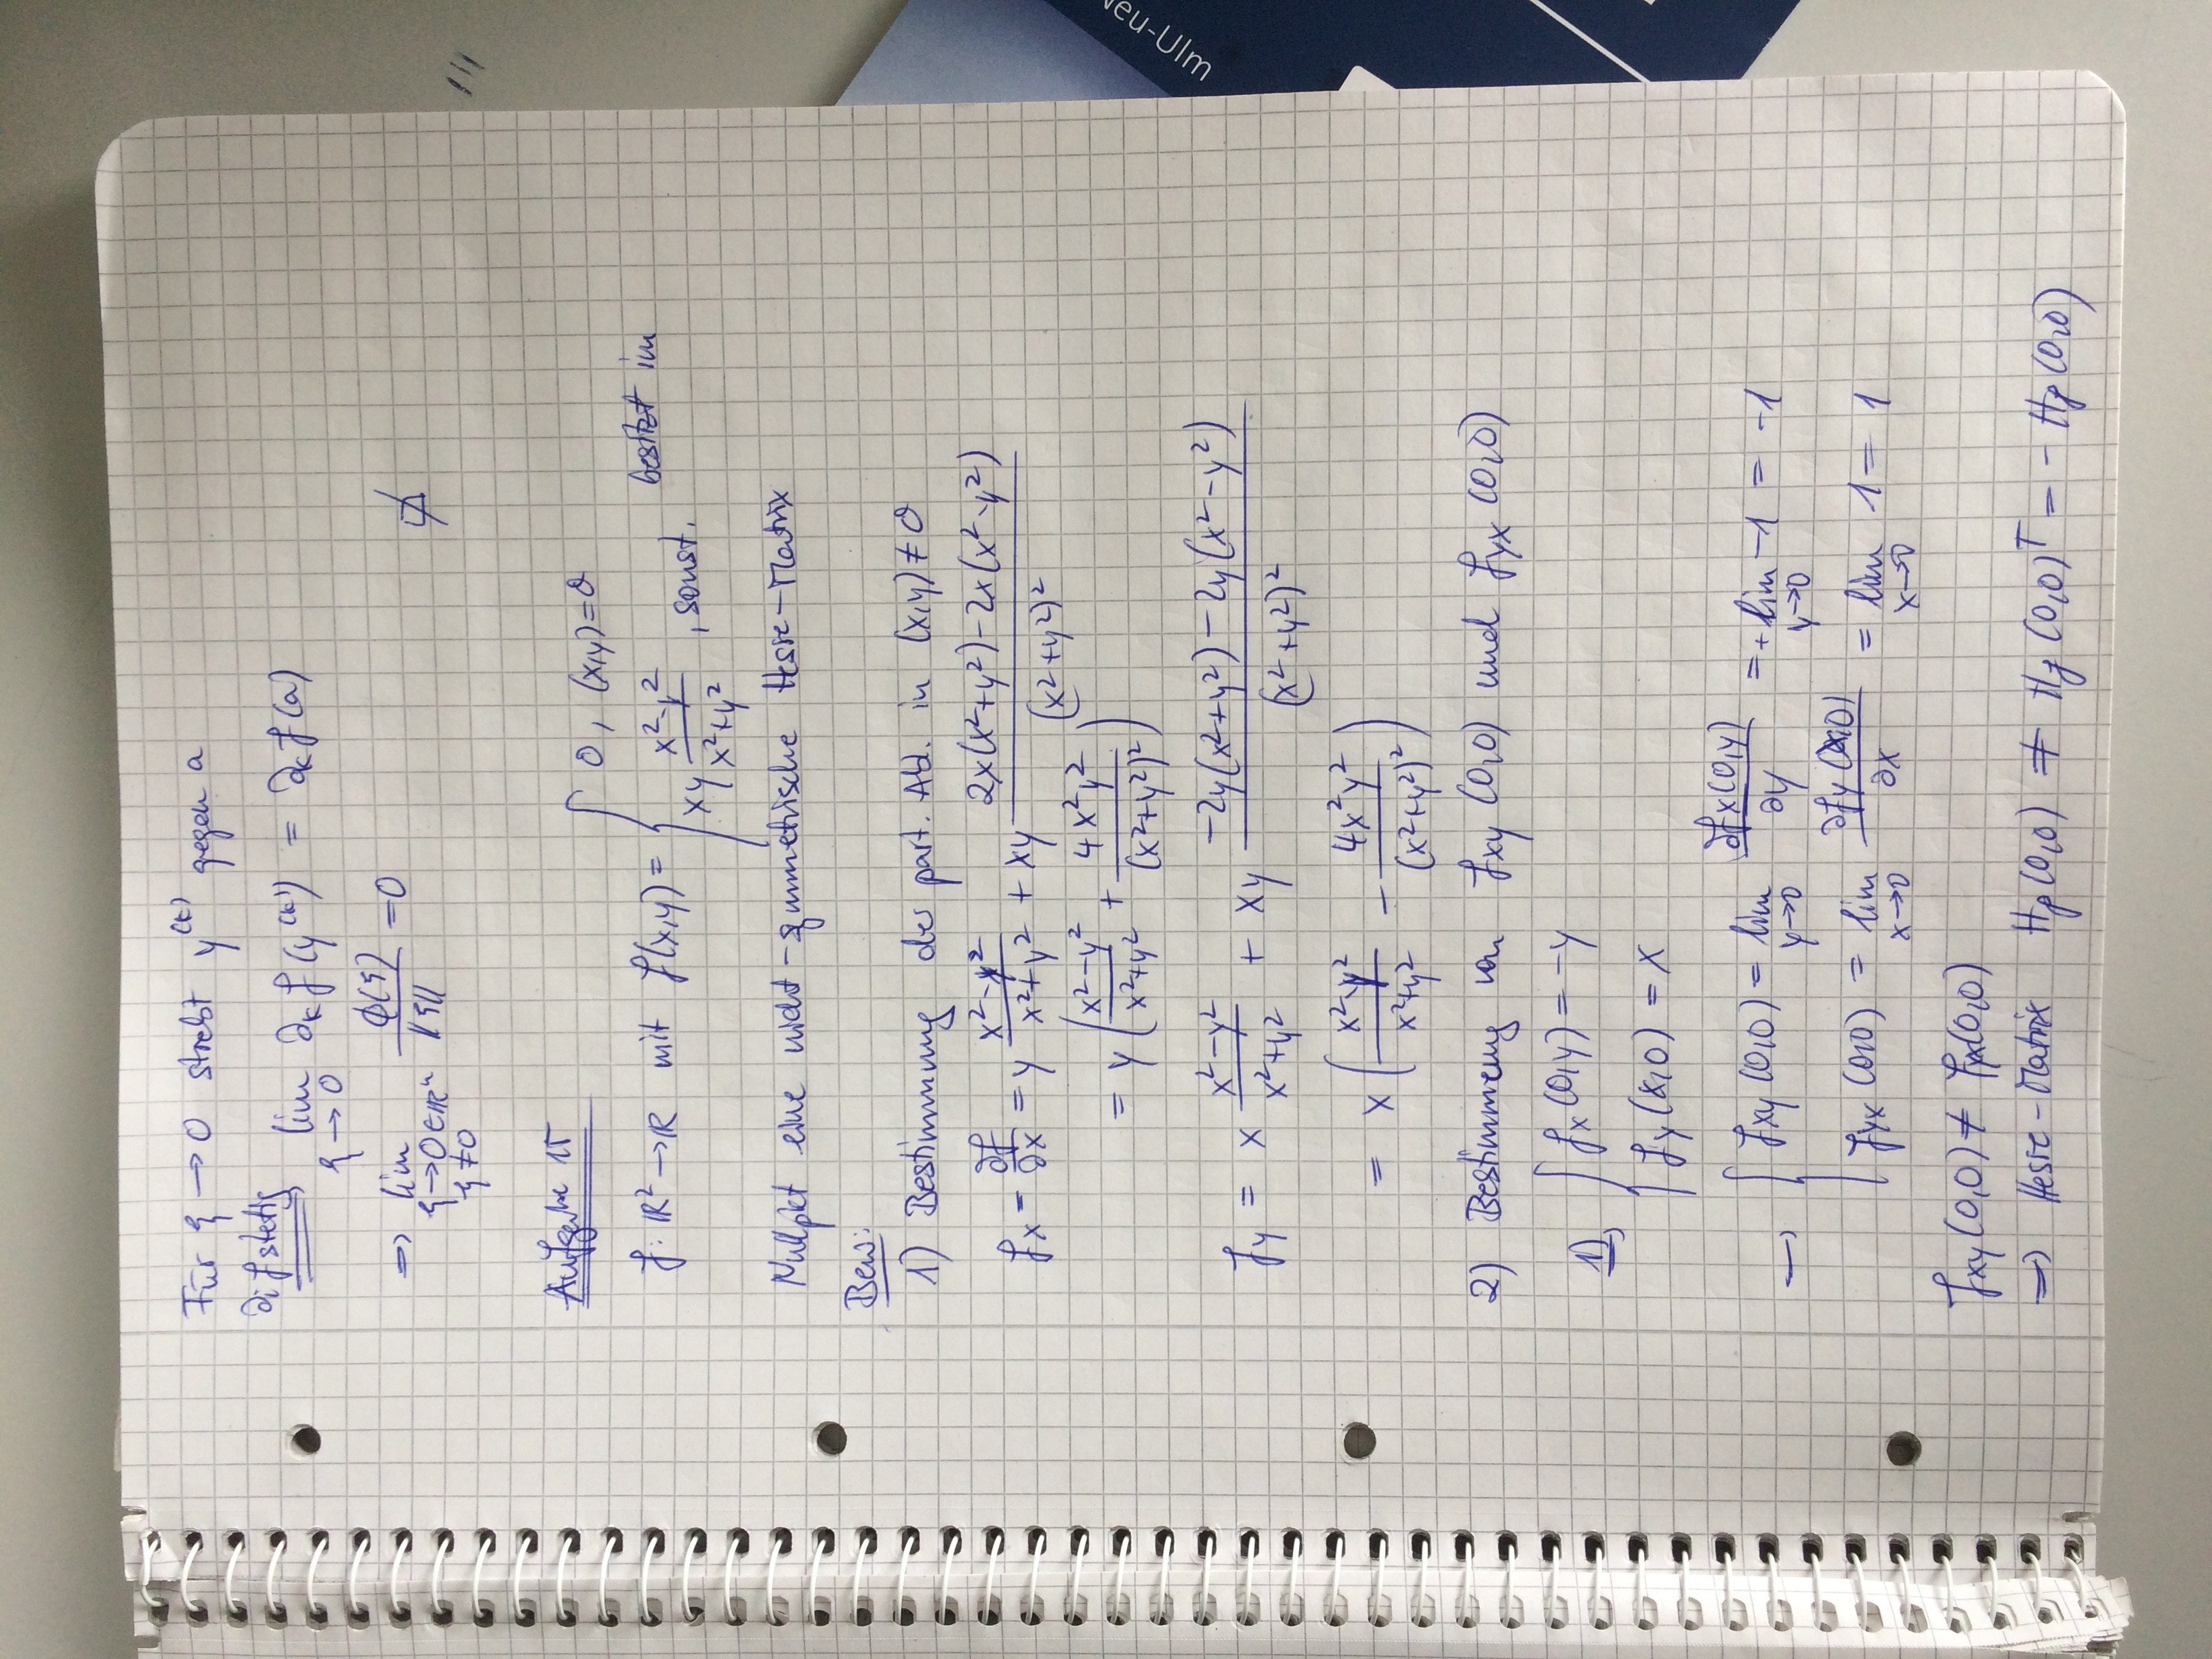 Für ξ → 0 strebt y^(k) gegen a
∂i f stetig ⟹ lim_{ξ → 0} ∂_k f(y^(k)) = ∂_k f(a)
⇒ lim_{ξ → 0 ∈ ℝ^n, ξ ≠ 0} ϕ(ξ) / ||ξ|| = 0
Aufgabe 15
f: ℝ² → ℝ mit f(x,y) = { 0, (x,y)=0 ; xy (x²-y²)/(x²+y²), sonst. besitzt im
Nullpkt eine nicht-symmetrische Hesse-Matrix
Bew:
1) Bestimmung der part. Abl. in (x,y) ≠ 0
f_x = ∂f/∂x = y (x²-y²)/(x²+y²) + xy (2x(x²+y²)-2x(x²-y²))/(x²+y²)²
= y ( (x²-y²)/(x²+y²) + 4x²y²/(x²+y²)² )
f_y = x (x²-y²)/(x²+y²) + xy (-2y(x²+y²)-2y(x²-y²))/(x²+y²)²
= x ( (x²-y²)/(x²+y²) - 4x²y²/(x²+y²)² )
2) Bestimmung von f_xy (0,0) und f_yx (0,0)
1) ⇒ { f_x (0,y) = -y
f_y (x,0) = x
→ { f_xy (0,0) = lim_{y→0} ∂f_x(0,y)/∂y = + lim_{y→0} -1 = -1
f_yx (0,0) = lim_{x→0} ∂f_y(x,0)/∂x = lim_{x→0} 1 = 1
f_xy (0,0) ≠ f_yx (0,0)
⇒ Hesse-Matrix H_f (0,0) ≠ H_f (0,0)^T = - H_f (0,0)
Neu-Ulm